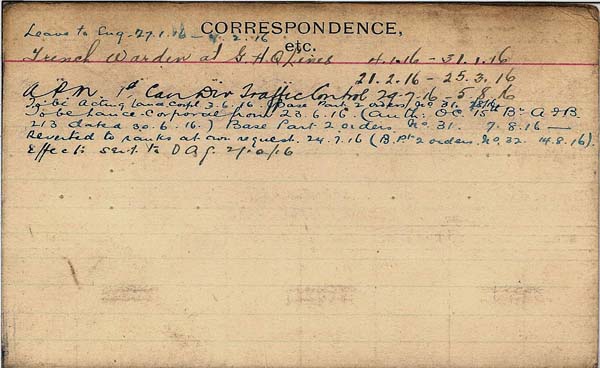 CORRESPONDENCE,
etc.
Leave to Eng. 27.1.16 - 4.2.16
Trench Warden at G.H.Q Lines 4.1.16 - 31.1.16
21.2.16 - 25.3.16
A.P.M. 1st Can Div Traffic Control 29.7.16 - 5.8.16
To be Acting Lance Corpl 3.6.16. (Base Part 2 orders No 31.
To be Lance-Corporal from 23.6.16. (Auth: O.C. 15th Bn A.F.B.
213 dated 30.6.16.) Base Part 2 orders No. 31. 7.8.16 —
Reverted to ranks at own request. 24.7.16 (B. Pt 2 orders. No. 32. 14.8.16).
Effects sent to D A G